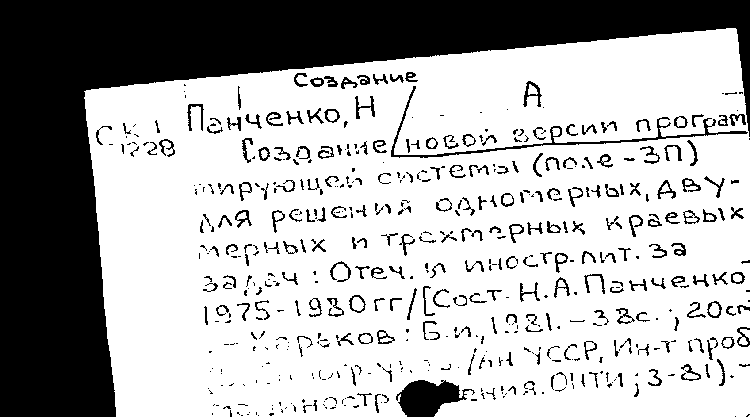 Создание
Панченко, Н А
СК 1
1228
Создание новой версии програм
мирующей системы (поле-3П)
для решения одномерных, дву-
мерных и трехмерных краевых
задач: Отеч. и иностр. лит. за
1975-1980 гг/[Сост. Н.А. Панченко
. - Харьков: Б.и., 1981. - 38с.; 20см
/АН УССР, Ин-т проб
машиностроения. ОНТИ; 3-81). -